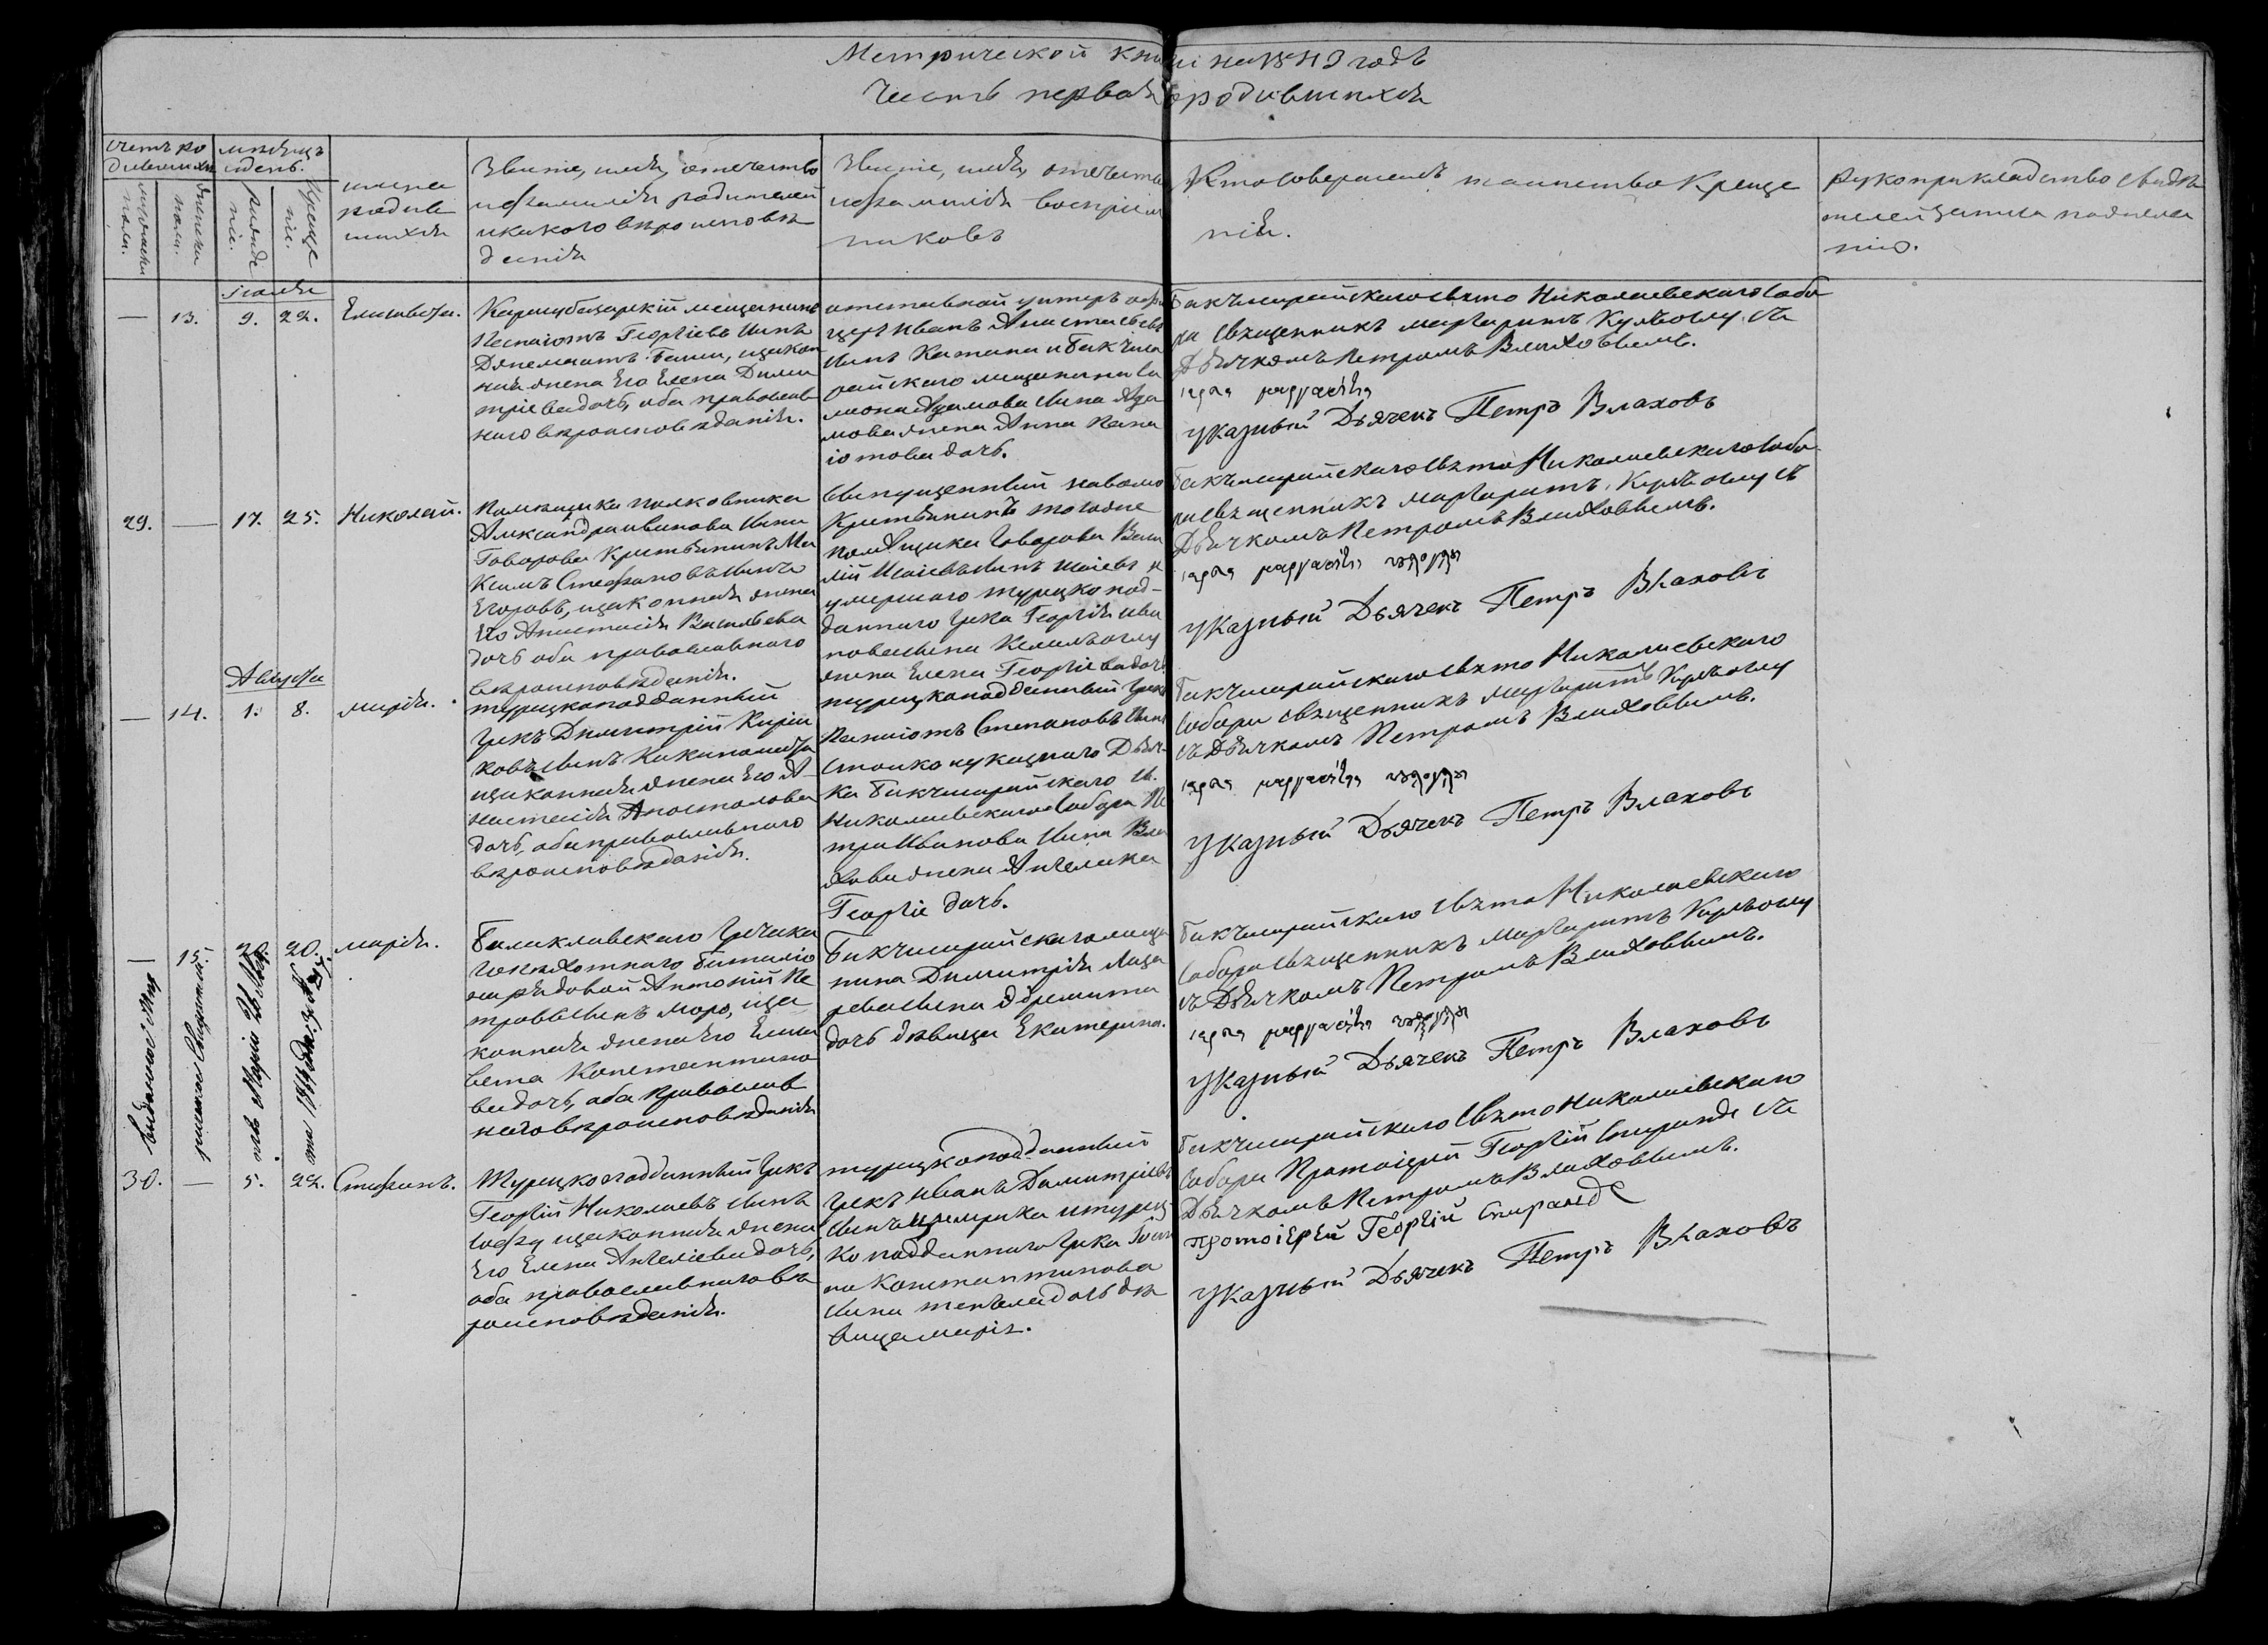 Метрической книги на 1843 годъ
Часть первая о родившихся
Счетъ ро
дившихся
мѣсяцъ
и день.
мужеска
пола.
женска
пола.
рожде
нiе.
креще
нiе.
имена
родив
шихся
Званiе, имя, отечество
и фамилiя родителей
и какого вѣроисповѣ
данiя
Званiе, имя, отечество
и фамилiя воспрiем
никовъ
Кто совершалъ таинство Креще
нiя.
Рукоприкладство свидѣ
телей записа по желан
нiю.
Iюля
— 13. 9. 22. Елисавета.
Карасубазарскiй мещанинъ
Панаiотъ Георгiевъ сынъ
и закон
ная жена Его Елена Дими
трiева дочь, оба православ
наго вѣроисповѣданiя.
отставной унтеръ офи
церъ Иванъ Анастасьевъ
сынъ Катана и Бакчиса
райскаго мещанина Со
ломона Адамова сына Ада
мова жена Анна Пана
iотова дочь.
Бакчисарайскаго Свято Николаевскаго Собо
ра священникъ Маргаритъ Курьоглу съ
Дьячкомъ Петромъ Влаховымъ.
Указный Дьячекъ Петръ Влаховъ
29. — 17. 25. Николай.
Помѣщика полковника
Александра Иванова сына
Говорова Крестьянинъ Ма
ксимъ Стефановъ сынъ
Егоровъ, и законная жена
Его Анастасiя Васильева
дочь оба православнаго
вѣроисповѣданiя.
Отпущенный на волю
Крестьянинъ тогоже
помѣщика Говорова Васи
лiй Исаiевъ сынъ Исаiевъ и
умершаго турецко под-
даннаго Грека Георгiя Ива
нова сына
жена Елена Георгiева дочь
Бакчисарайскаго Свято Николаевскаго Собо-
ра священникъ Маргаритъ Курьоглу съ
Дьячкомъ Петромъ Влаховымъ.
Указный Дьячекъ Петръ Влаховъ
Августа
— 14. 1. 8. Марiя.
турецкоподданный
Грекъ Димитрiй Кирiа
ковъ сынъ
и законная жена Его А-
настасiя Апостолова
дочь, оба православнаго
вѣроисповѣданiя.
турецкоподданный Грекъ
Панаiотъ Степановъ сынъ
и указнаго Дьяч-
ка Бакчисарайскаго Св.
Николаевскаго Собора Пе
тра Иванова сына Вла
хова жена Ангелика
Георгiе дочь.
Бакчисарайскаго Свято Николаевскаго
Собора священникъ Маргаритъ Курьоглу
съ Дьячкомъ Петромъ Влаховымъ.
Указный Дьячекъ Петръ Влаховъ
— 15. 20. Марiя.
Балаклавскаго Греческа
го пѣхотнаго Баталiо
на рядовой Антонiй Пе
тровъ сынъ Моро, и за
конная жена Его Елиса
вета Константино
ва дочь, оба православ
наго вѣроисповѣданiя
Бакчисарайскаго меща
нина Димитрiя Лаза
рева сына
дочь дѣвица Екатерина.
Бакчисарайскаго Свято Николаевскаго
Собора священникъ Маргаритъ Курьоглу
съ Дьячкомъ Петромъ Влаховымъ.
Указный Дьячекъ Петръ Влаховъ
30. — 5. 22. Стефанъ.
Турецкоподданный Грекъ
Георгiй Николаевъ сынъ
и законная жена
Его Елена Ангелiева дочь,
оба православнаго вѣ
роисповѣданiя.
турецкоподданный
Грекъ Иванъ Димитрiевъ
сынъ и турец
ко подданнаго Грека Iоан
на Константинова
сына дочь дѣ
вица Марiя.
Бакчисарайскаго Свято Николаевскаго
Собора Протоiерей Георгiй Спиранде съ
Дьячкомъ Петромъ Влаховымъ.
Протоiерей Георгiй Спиранде
Указный Дьячекъ Петръ Влаховъ